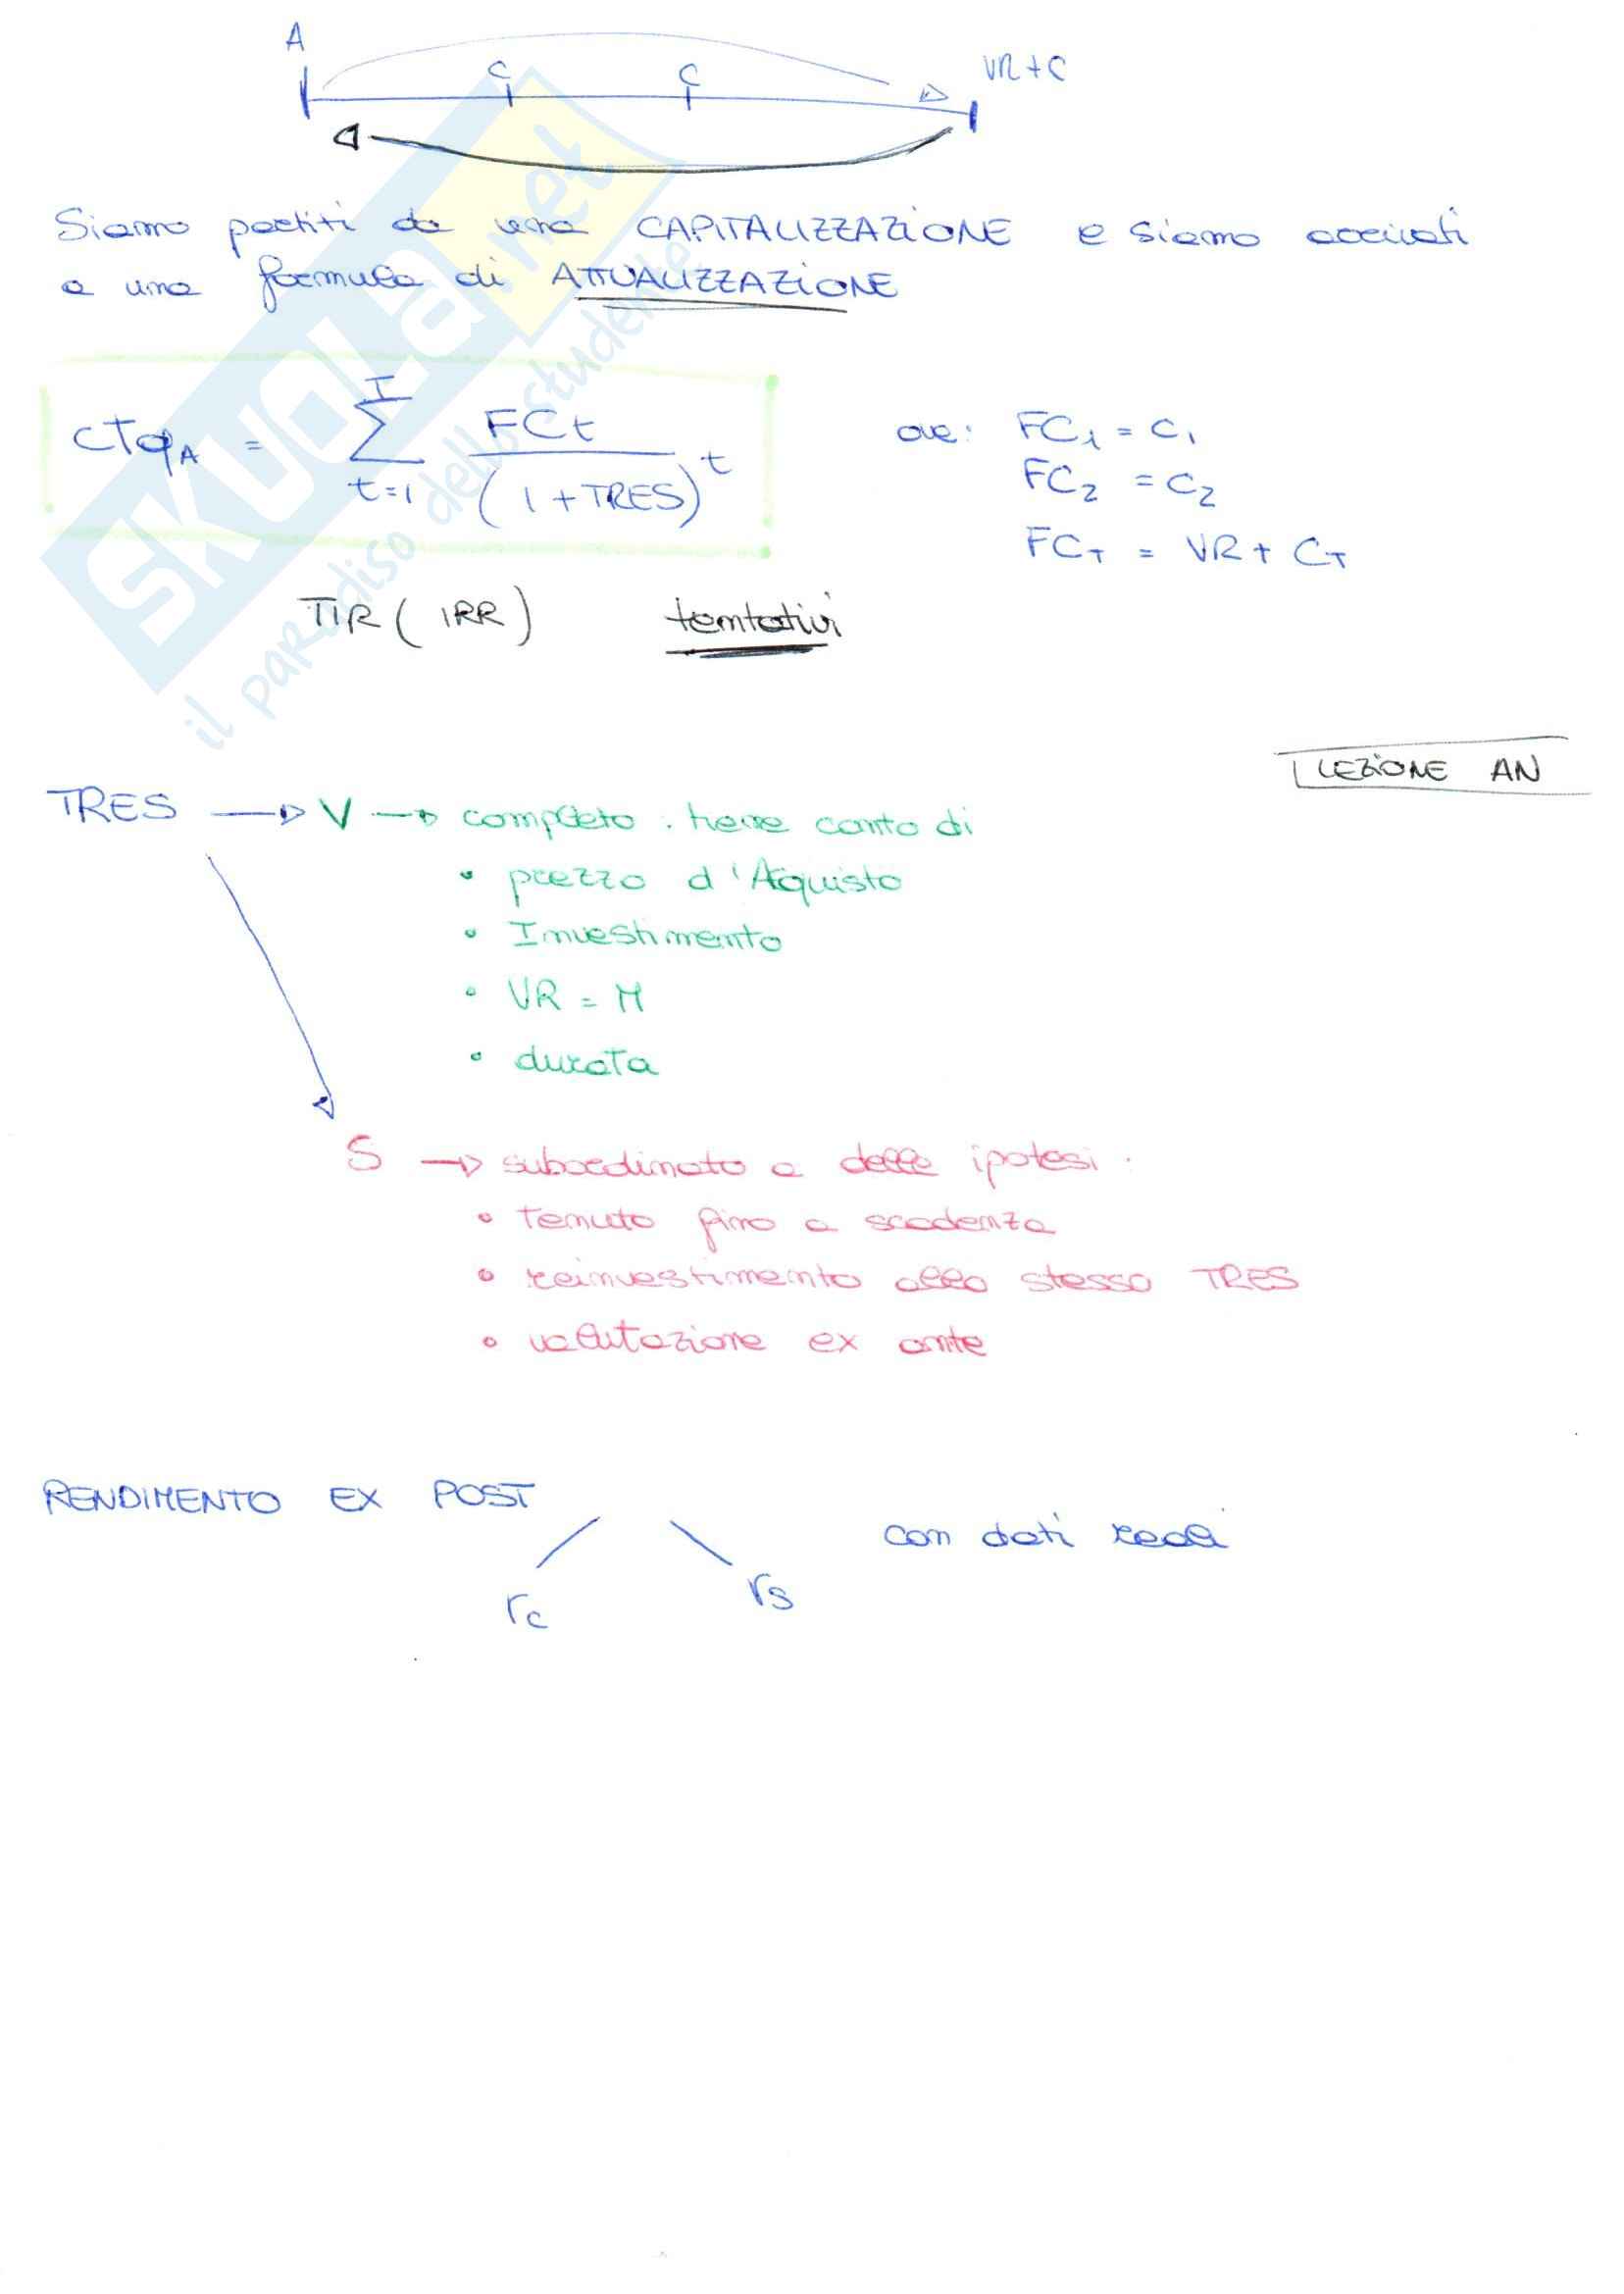 A
C
C
VR + C
Siamo partiti da una CAPITALIZZAZIONE e siamo arrivati
a una formula di ATTUALIZZAZIONE
CTqA = Σ I t=1 FCt / (1 + TRES)^t
ove: FC1 = C1
FC2 = C2
FCT = VR + CT
TIR (IRR) tentativi
LEZIONE AN
TRES → V → completo : tiene conto di
• prezzo d'Aquisto
• Investimento
• VR = M
• durata
S → subordinato a delle ipotesi :
• tenuto fino a scadenza
• reinvestimento allo stesso TRES
• valutazione ex ante
RENDIMENTO EX POST
con dati reali
rc
rs
SKUOLA.net
il paradiso dello studente